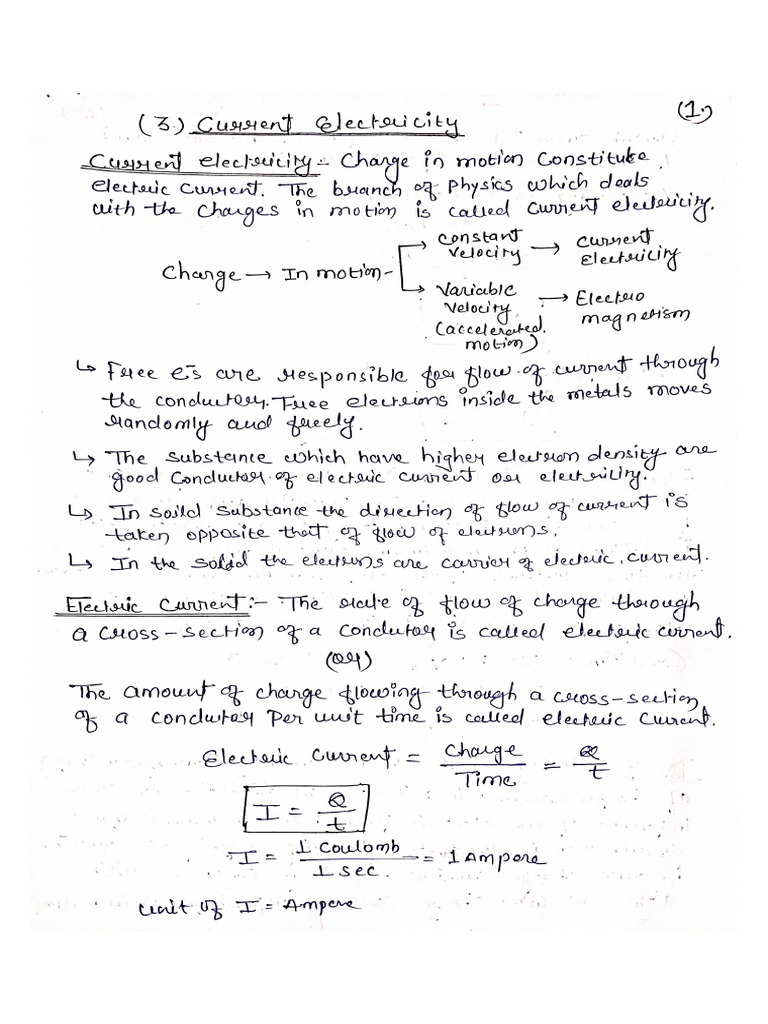 (1.)
(3.) Current Electricity
Current electricity:- Charge in motion Constitute
electric current. The branch of Physics which deals
with the charges in motion is called current electricity.
Charge → In motion - Constant velocity → Current Electricity
Variable velocity (accelerated motion) → Electro magnetism
↳ Free e⁻s are responsible for flow of current through
the conductor. Free electrons inside the metals moves
randomly and freely.
↳ The substance which have higher electron density are
good conductor of electric current or electricity.
↳ In soild substance the direction of flow of current is
taken opposite that of flow of electrons.
↳ In the solid the electrons are carrier of electric current.
Electric Current:- The rate of flow of charge through
a cross-section of a condutor is called electric current.
(or)
The amount of charge flowing through a cross-section
of a condutor Per unit time is called electric current.
Electric Current = Charge / Time = Q / t
I = Q / t
I = 1 Coulomb / 1 sec. = 1 Ampere
Unit of I = Ampere